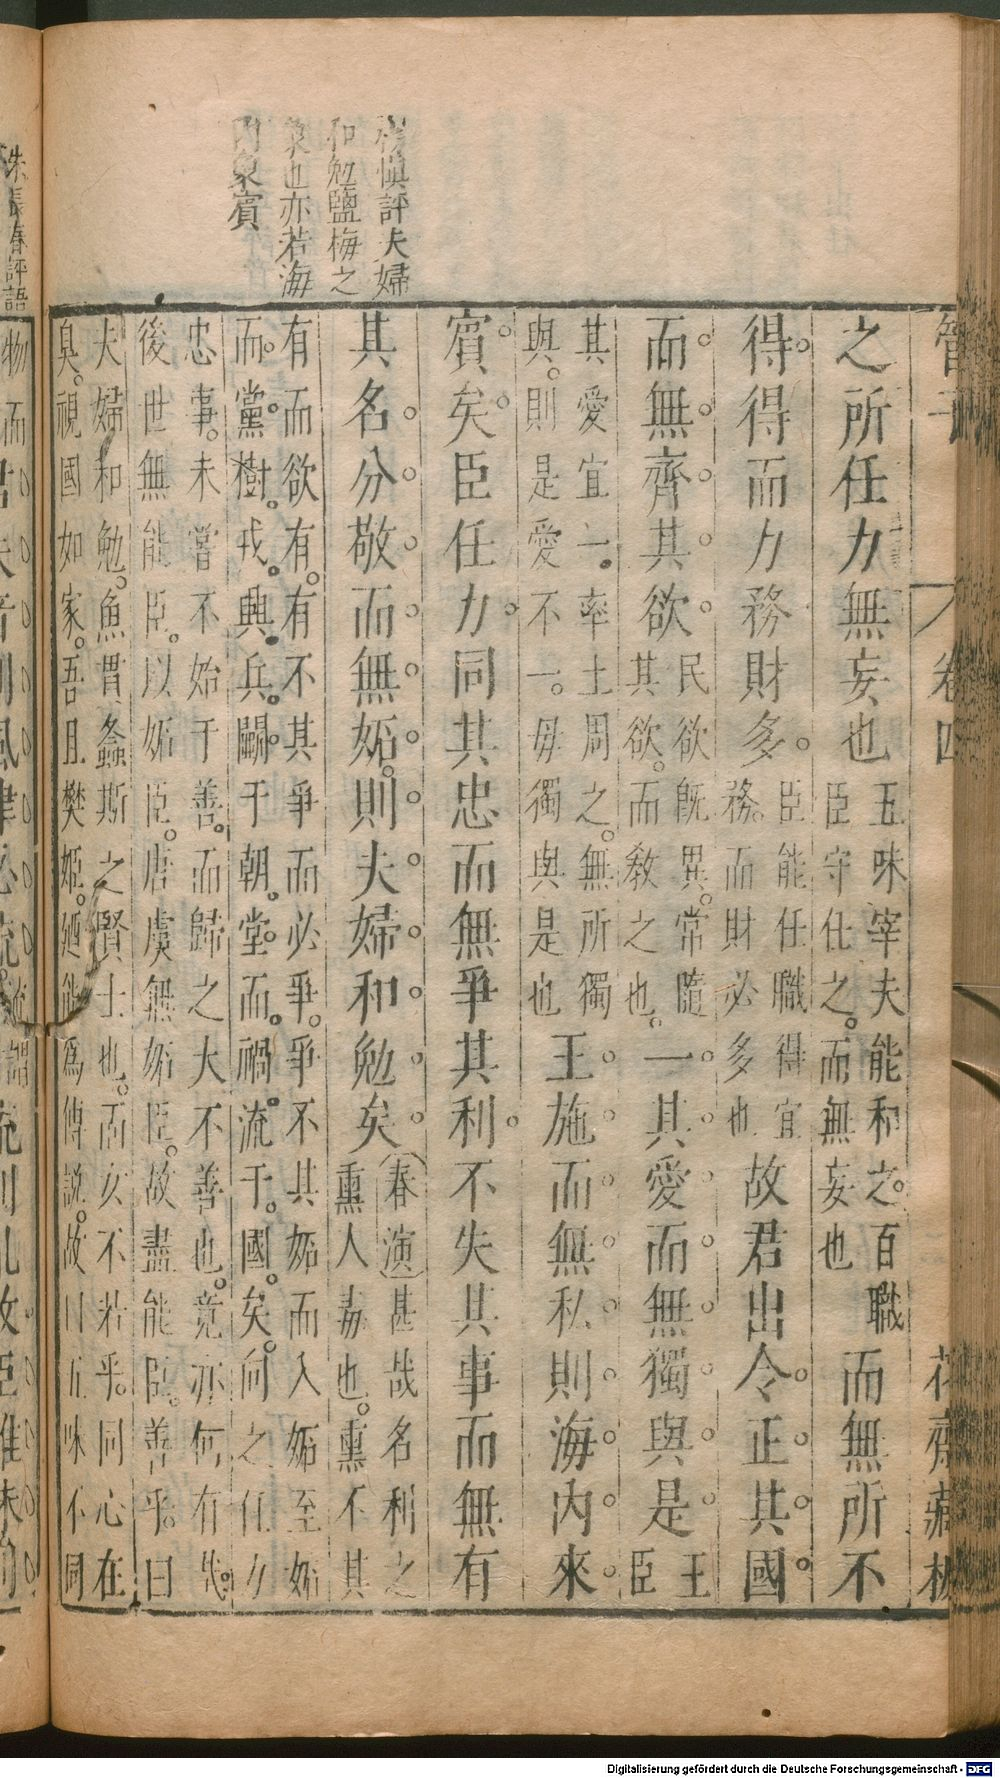 管子
卷四
花齋藏板
之所任力無妄也五味宰夫能和之。百職臣守任之。而無妄也而無所不
得。得而力務財多。臣能任職得宜務。而財必多也故君出令。正其國。
而無齊其欲。民欲既異。常隨其欲。而教之也。一其愛而無獨與是。王臣
其愛宜一。率土周之。無所獨與。則是愛不一。毋獨與是也。王施而無私則海內來
賓矣。臣任力。同其忠而無爭其利。不失其事而無有
其名。分敬而無妬。則夫婦和勉矣。春演甚哉名利之
熏人毒也。熏不其
有而欲有。有不其爭而必爭。爭不其妬而入妬至妬
而黨樹。戎興。兵鬭于朝。堂而禍流于。國矣。何之任力
忠事。未嘗不始于善。而歸之大不善也。竟亦何有哉。
後世無能臣。以妬臣。唐虞無妬臣。故盡能臣。善乎。曰
夫婦和勉。魚貫螽斯之賢士也。而女不若乎。同心在
臭。視國如家。吾且樊姬。廼能為傅說。故曰五味不同
評夫婦
和勉鹽梅之
象也亦若海
內來賓
朱長春評語
Digitalisierung gefördert durch die Deutsche Forschungsgemeinschaft - DFG